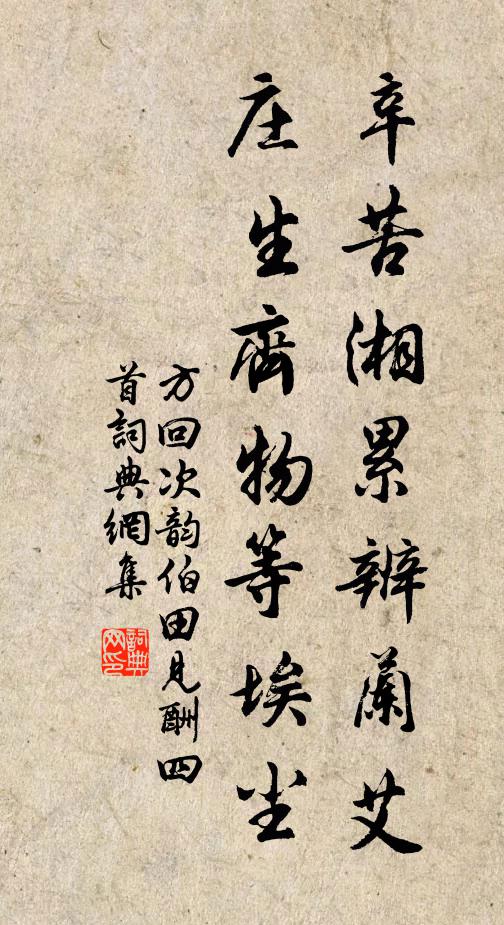 辛苦湘累辨蘭艾
庄生齊物等埃尘
方回次韵伯田見酬四
首詞典網集
詞典网印